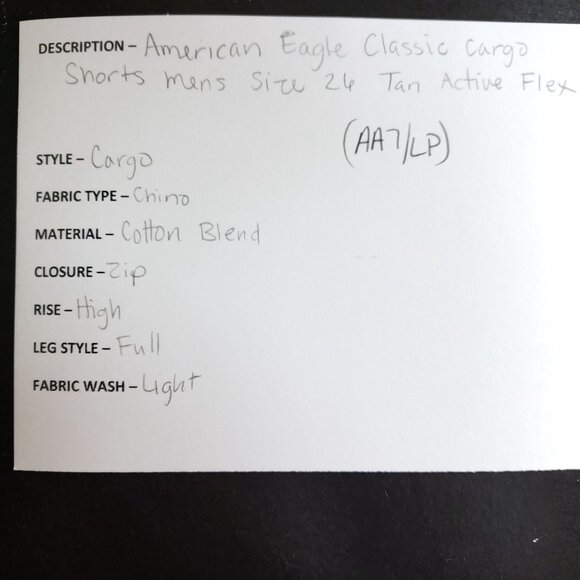 DESCRIPTION – American Eagle Classic Cargo
Shorts Mens Size 26 Tan Active Flex
(AA7/LP)
STYLE – Cargo
FABRIC TYPE – Chino
MATERIAL – Cotton Blend
CLOSURE – Zip
RISE – High
LEG STYLE – Full
FABRIC WASH – Light